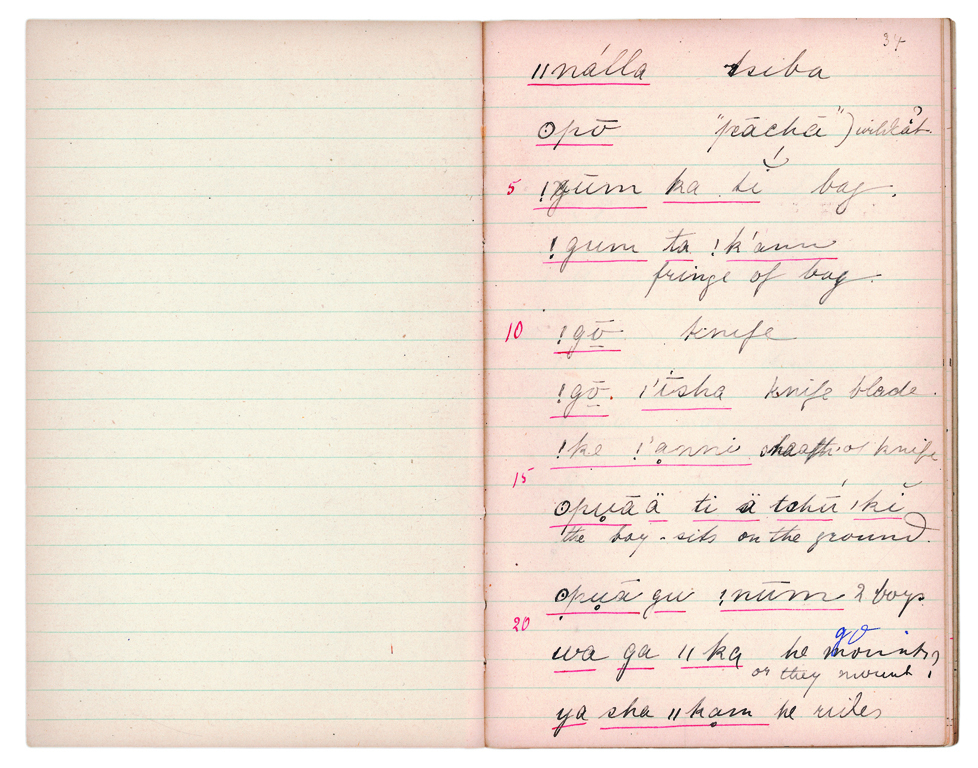 34
ǁnálla tseba
ʘpō "pāchā") wildcat ?
5 !gūm ka tĭ bag.
!gum ta !k'ann
fringe of bag.
10 !gō knife
!gō. ǀ'īsha knife blade.
!ke !'ạnni shaft of knife
15
ʘpụāä ti ä tchú ǀkĭ
the boy - sits on the ground.
ʘpụā gu !nūm 2 boys
20
wa ga ǁkạ he mounts ?
go
or they mount ?
ya sha ǁkạm he rides